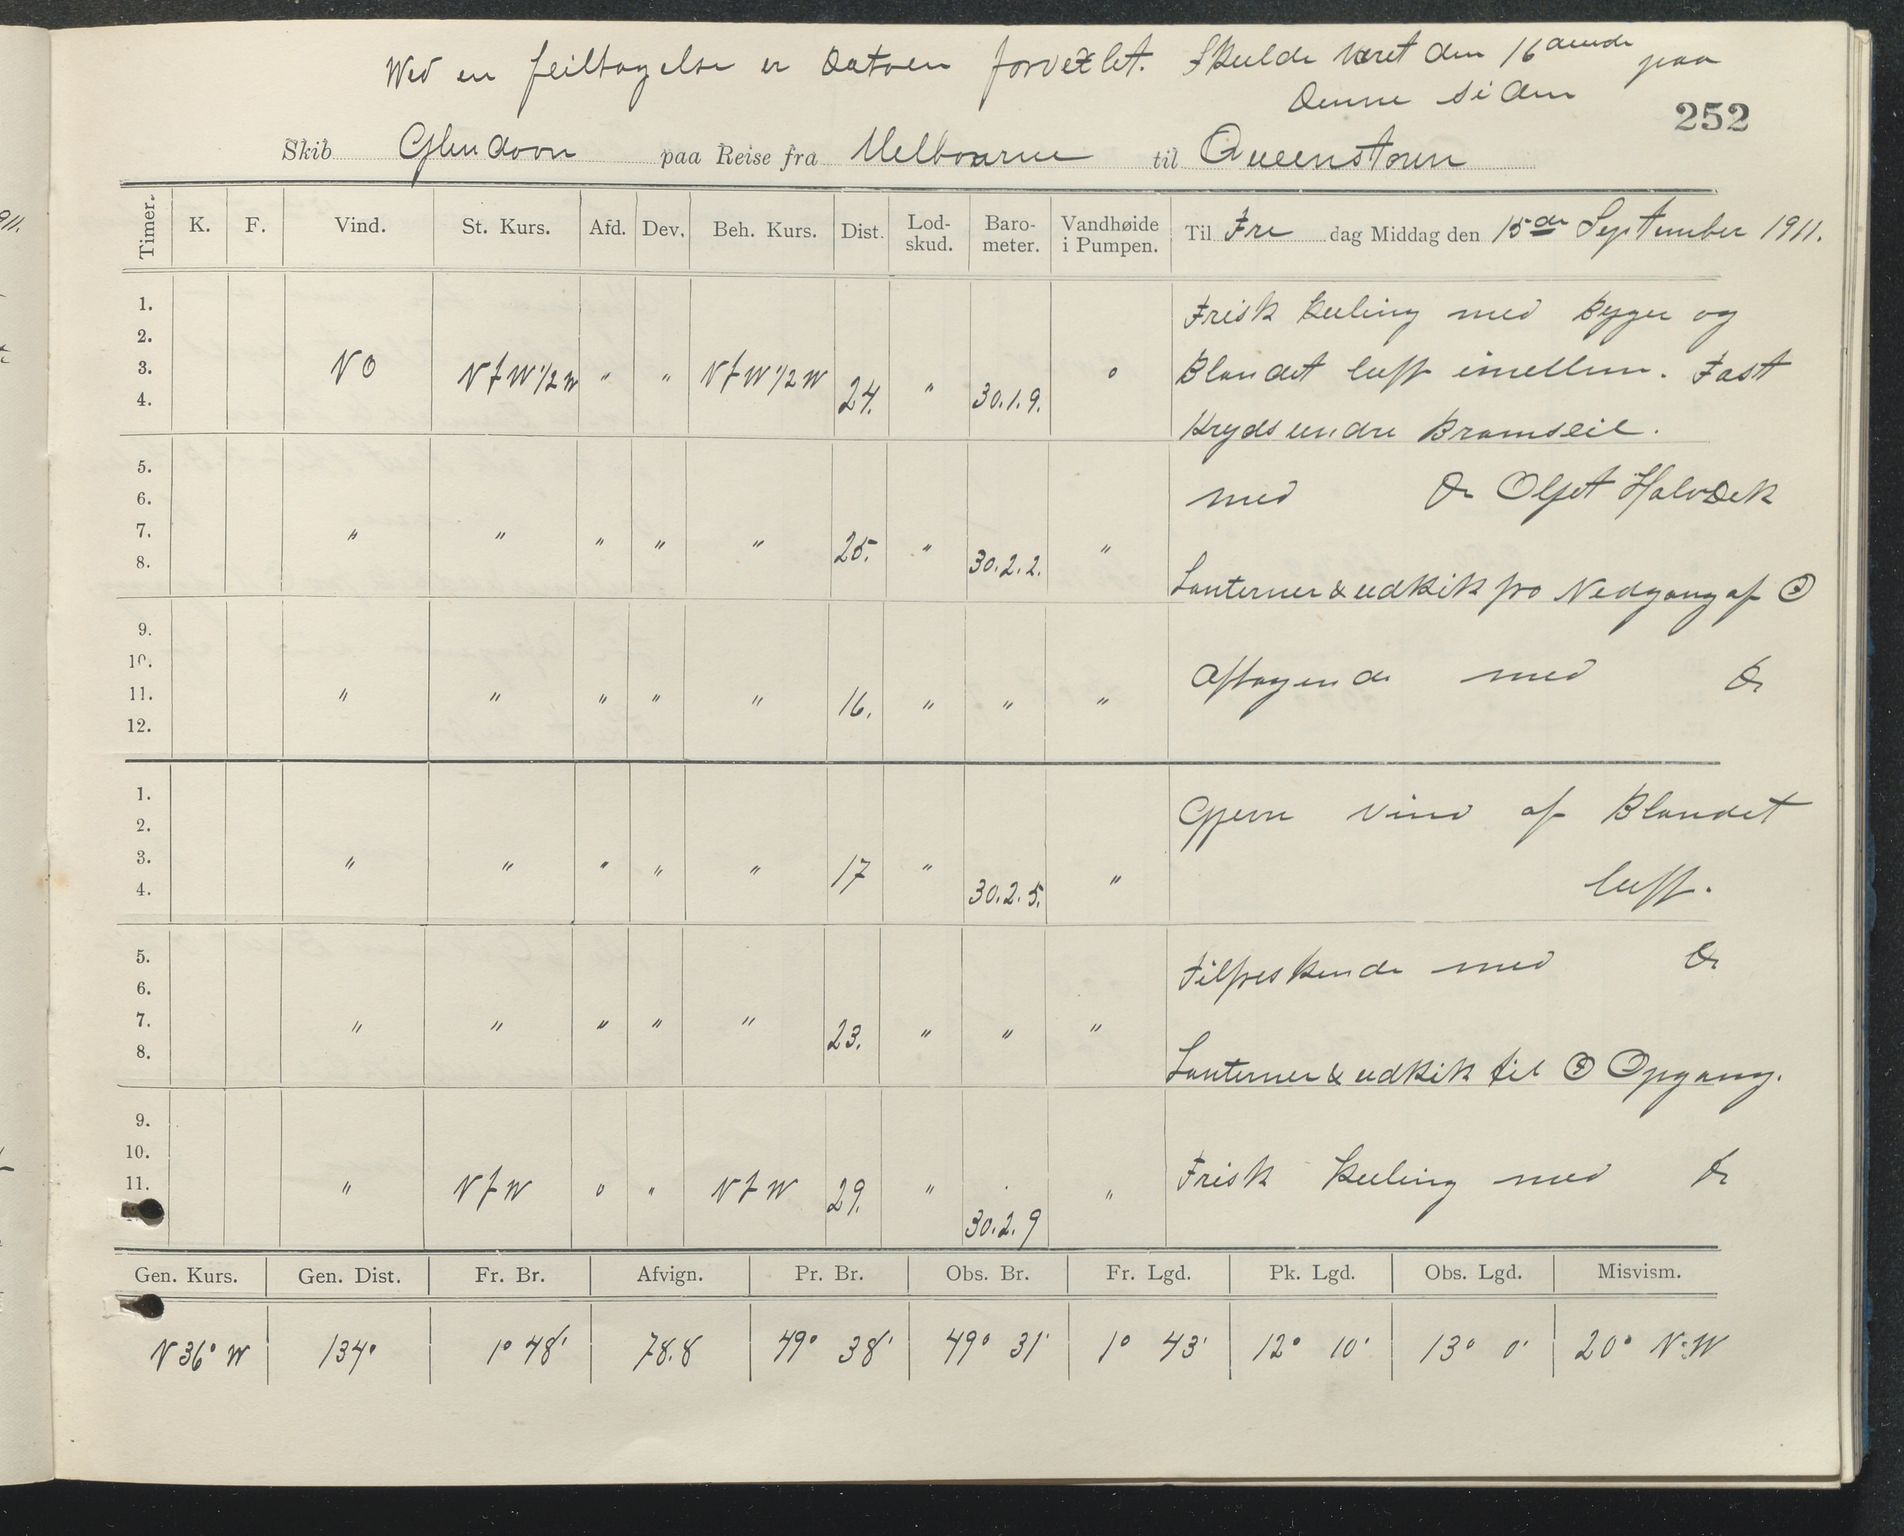 Ved en feiltagelse er Datoen forvexlet. Skulde været den 16 amde paa
denne siden
252
Skib Glendoon paa Reise fra Melbourne til Queenstown
Timer. K. F. Vind. St. Kurs. Afd. Dev. Beh. Kurs. Dist. Lod-skud. Baro-meter. Vandhøide i Pumpen. Til Fre dag Middag den 15de September 1911.
1. Frisk kuling med Byger og
2.
3. NO N t W 1/2 W " " N t W 1/2 W 24. " 30.1.9. 0 Blandet luft imellem. Fast
4. Krydsundre Bramseil.
5.
6. med Do Oljet Halvdek
7. " " " " " 25. " 30.2.2. "
8. Lanterner & udkik fra Nedgang af ☉
9.
10. Aftagende med Do
11. " " " " " 16. " " "
12.
1. Gjevn vind af Blandet
2.
3. " " " " " 17 " 30.2.5. "
4. luft.
5. Tilfreskende med Do
6.
7. " " " " " 23. " " "
8. Lanterner & udkik til ☉ Opgang.
9.
10.
11. " N t W " " N t W 29. " 30.2.9 " Frisk kuling med Do
Gen. Kurs. Gen. Dist. Fr. Br. Afvign. Pr. Br. Obs. Br. Fr. Lgd. Pk. Lgd. Obs. Lgd. Misvism.
N 36° W 134° 1° 48' 78.8 49° 38' 49° 31' 1° 43' 12° 10' 13° 0' 20° N.W